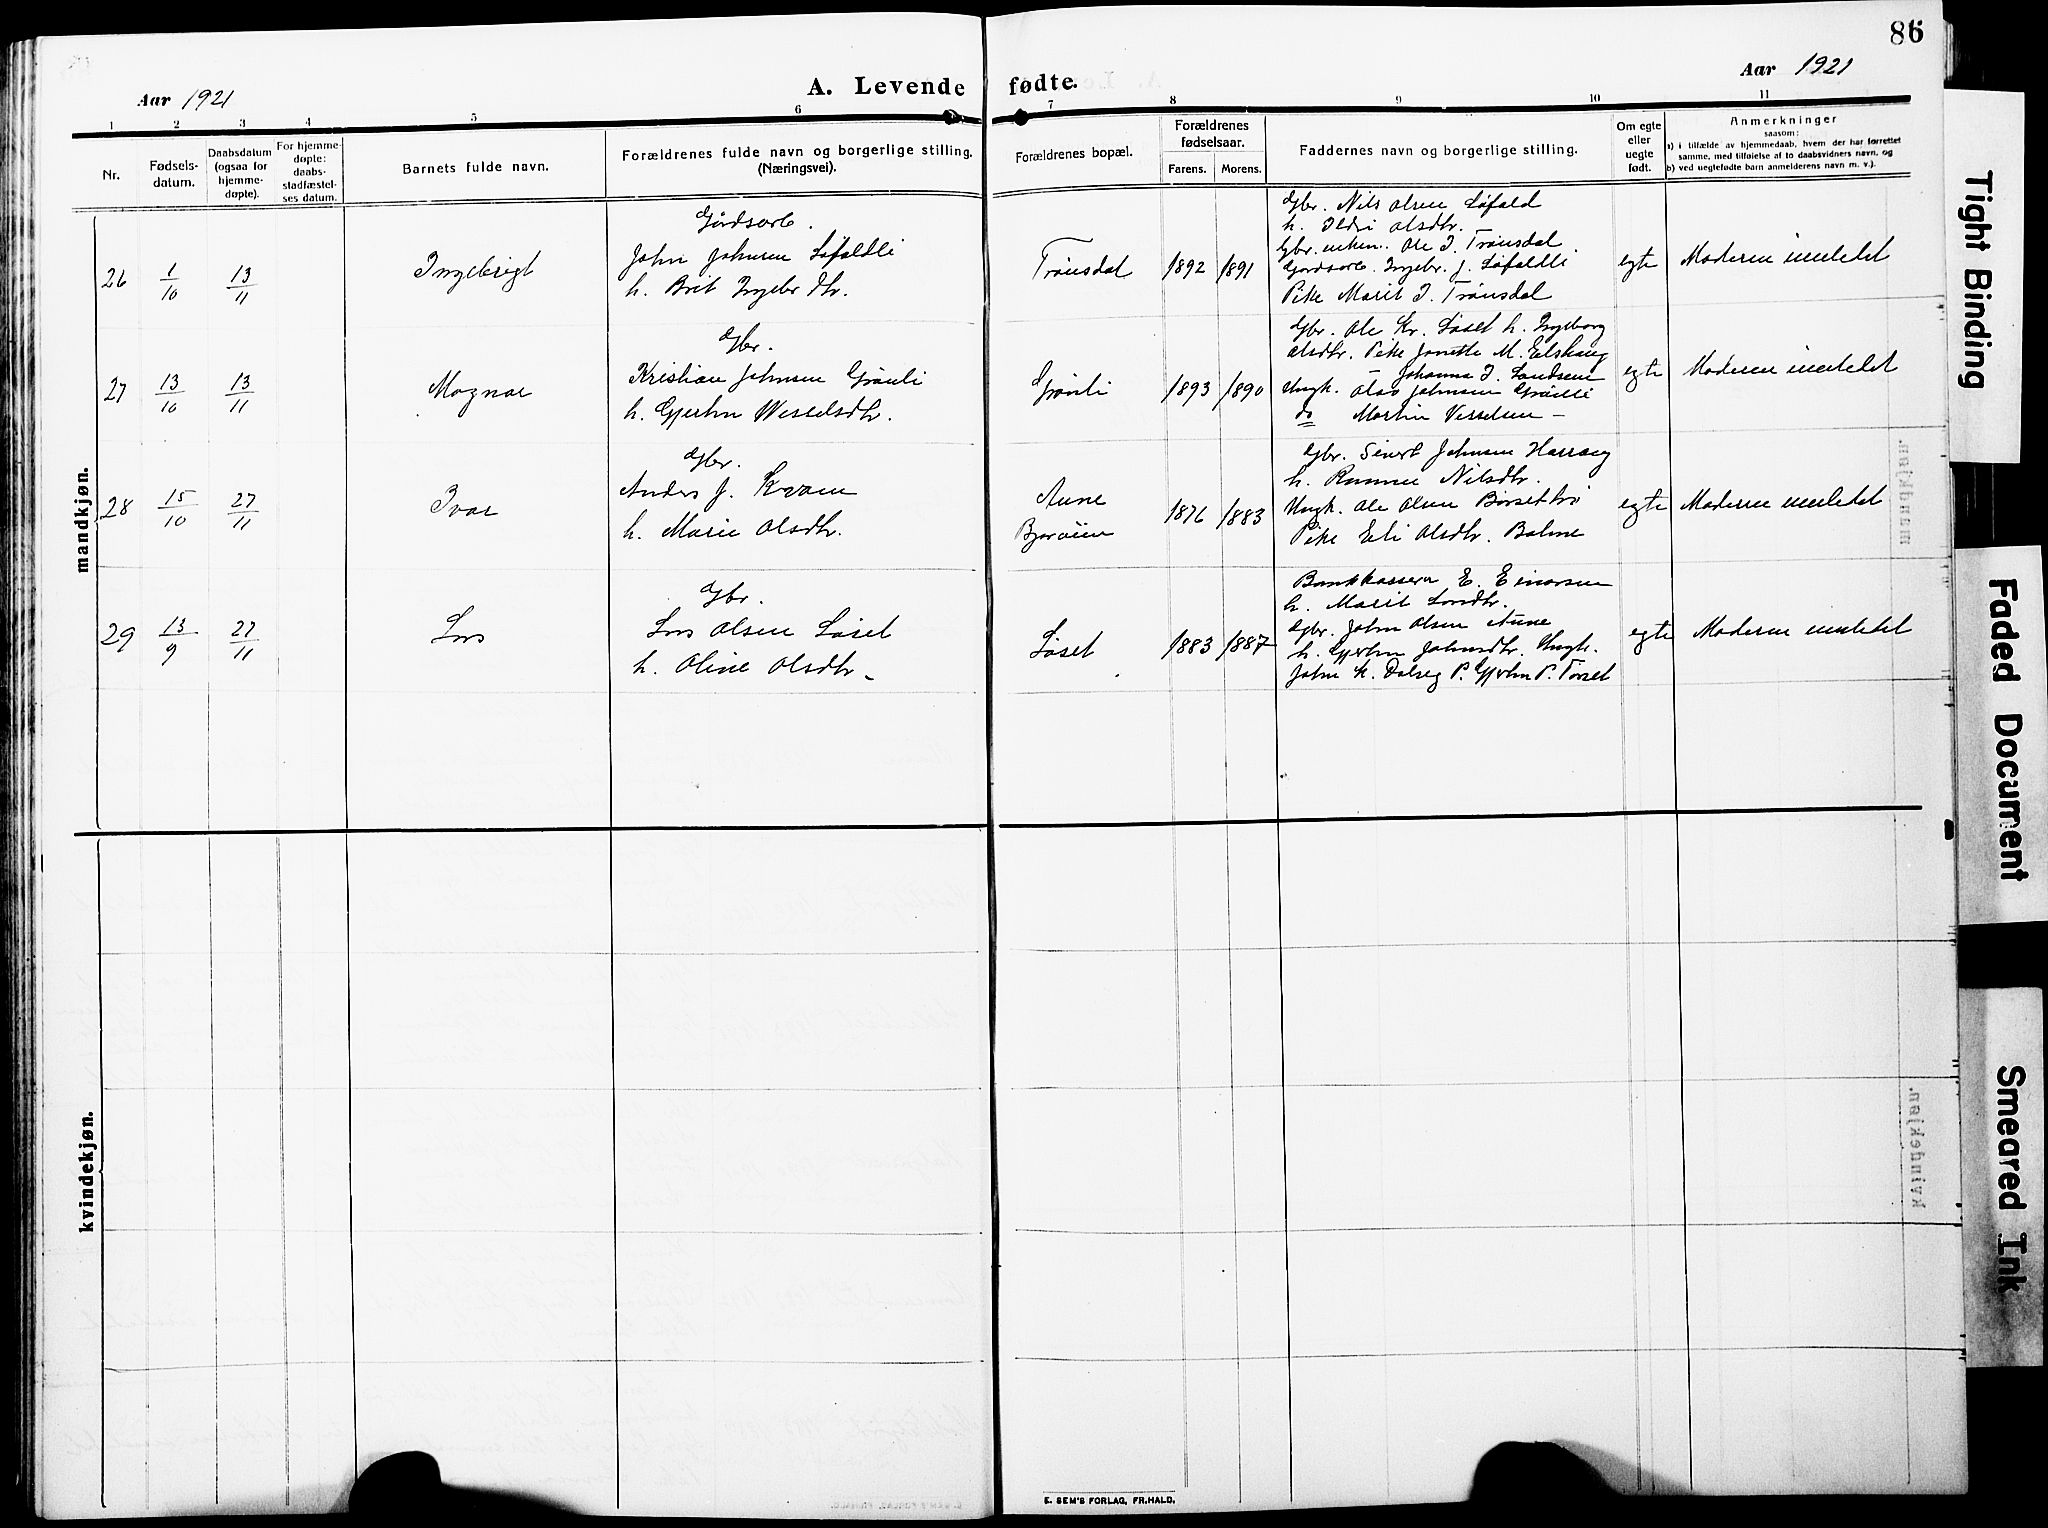 86
Aar 1921
A. Levende fødte.
Aar 1921
1 2 3 4 5 6 7 8 9 10 11
Nr.
Fødsels-
datum.
Daabsdatum
(ogsaa for
hjemme-
døpte).
For hjemme-
døpte:
daabs-
stadfæstel-
ses datum.
Barnets fulde navn.
Forældrenes fulde navn og borgerlige stilling.
(Næringsvei).
Forældrenes bopæl.
Forældrenes
fødselsaar.
Farens. Morens.
Faddernes navn og borgerlige stilling.
Om egte
eller
uegte
født.
Anmerkninger
saasom:
a) i tilfælde av hjemmedaab, hvem der har forrettet
samme, med tilføielse af to daabsvidners navn, og
b) ved uegtefødte barn anmelderens navn m. v.).
mandkjøn.
26
1/10
13/11
Ingebrigt
Gårdsarb.
John Johnsen Løfaldli
h. Brit Ingebr.dtr.
Trönsdal
1892 1891
Gbr. Nils Olsen Løfald
h. Ildri Olsdtr.
Gbr. enkem. Ole I. Trönsdal
Gårdsarb. Ingebr. J. Løfaldli
Pike Marit I. Trönsdal
egte
Moderen innledet
27
13/10
13/11
Magnar
Gbr.
Kristian Johnsen Grönli
h. Gjertru Wesselsdtr.
Grönli
1893 1890
Gbr. Ole Kr. Løset h. Ingeborg
Olsdtr. Pike Janette M. Elshaug
– Johanna I. Sandsem
Ungk. Olav Johnsen Grönli
do Martin Vesselsen –
egte
Moderen innledet
28
15/10
27/11
Ivar
Gbr.
Anders J. Kvam
h. Marie Olsdtr.
Aune
1876 1883
Gbr. Sivert Johnsen Harang
h. Nilsdtr.
Ungk. Ole Olsen Börsettrö
Pike Eli Olsdtr. Bolme
egte
Moderen innledet
29
13/9
27/11
Lars
Gbr.
Lars Olsen Løset
h. Oline Olsdtr.
Løset
1883 1887
Bankkasserer E. Einarsen
h. Marit Larsdtr.
Gbr. John Olsen Aune
h. Gjertru Johnsdtr. Ungk.
John K. Dalseg P. Gjertru P. Torset
egte
Moderen innledet
kvindekjøn.
E. SEM'S FORLAG, FR.HALD.
Tight Binding
Faded Document
Smeared Ink